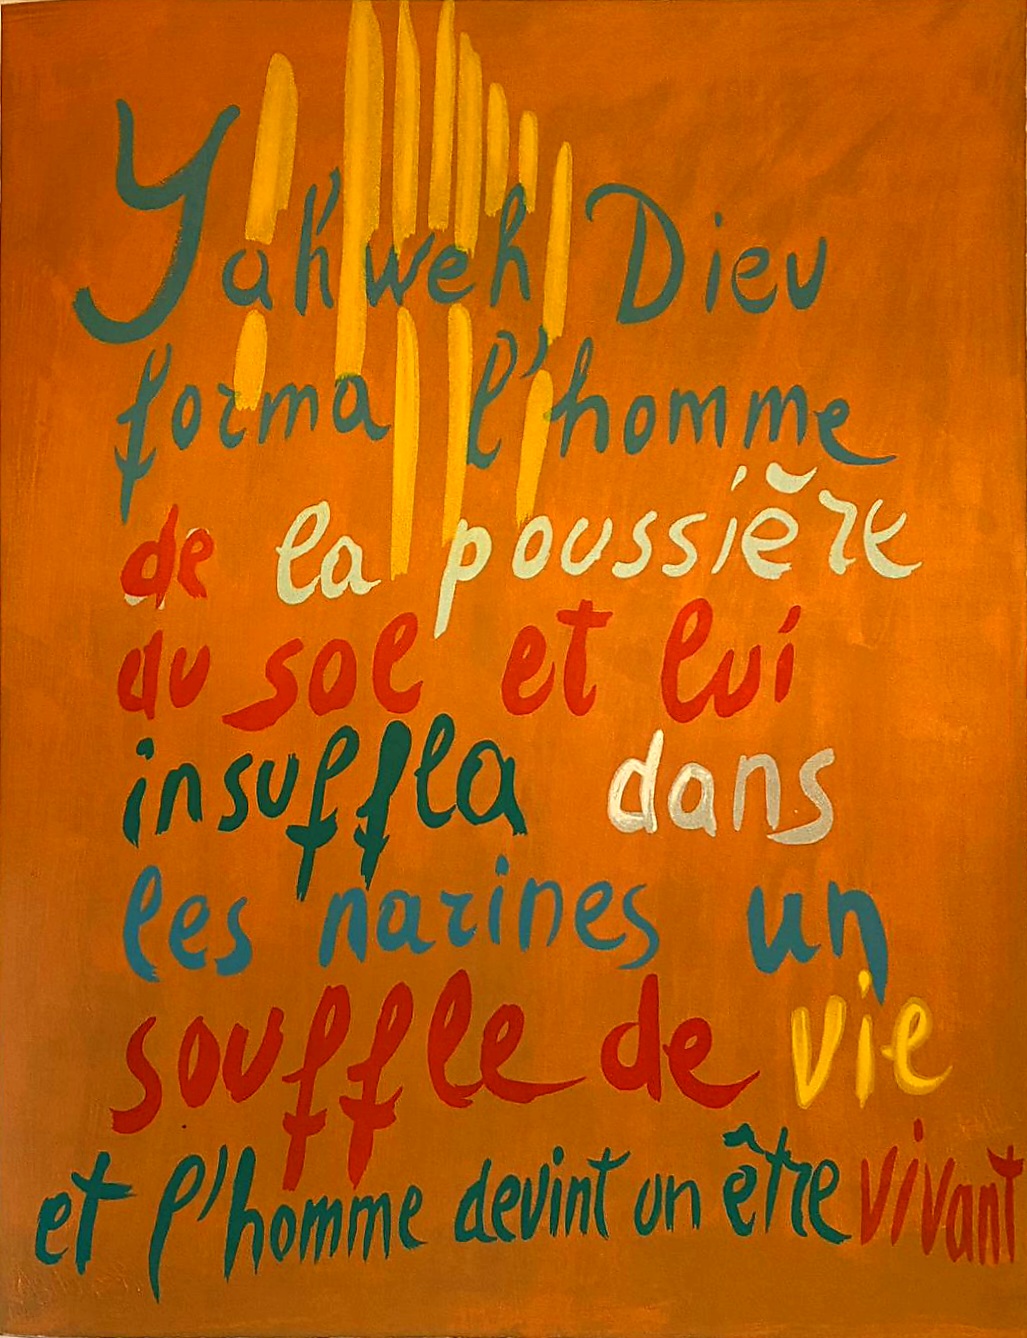 Yahweh Dieu
forma l'homme
de la poussière
du sol et lui
insuffla dans
les narines un
souffle de vie
et l'homme devint un être vivant